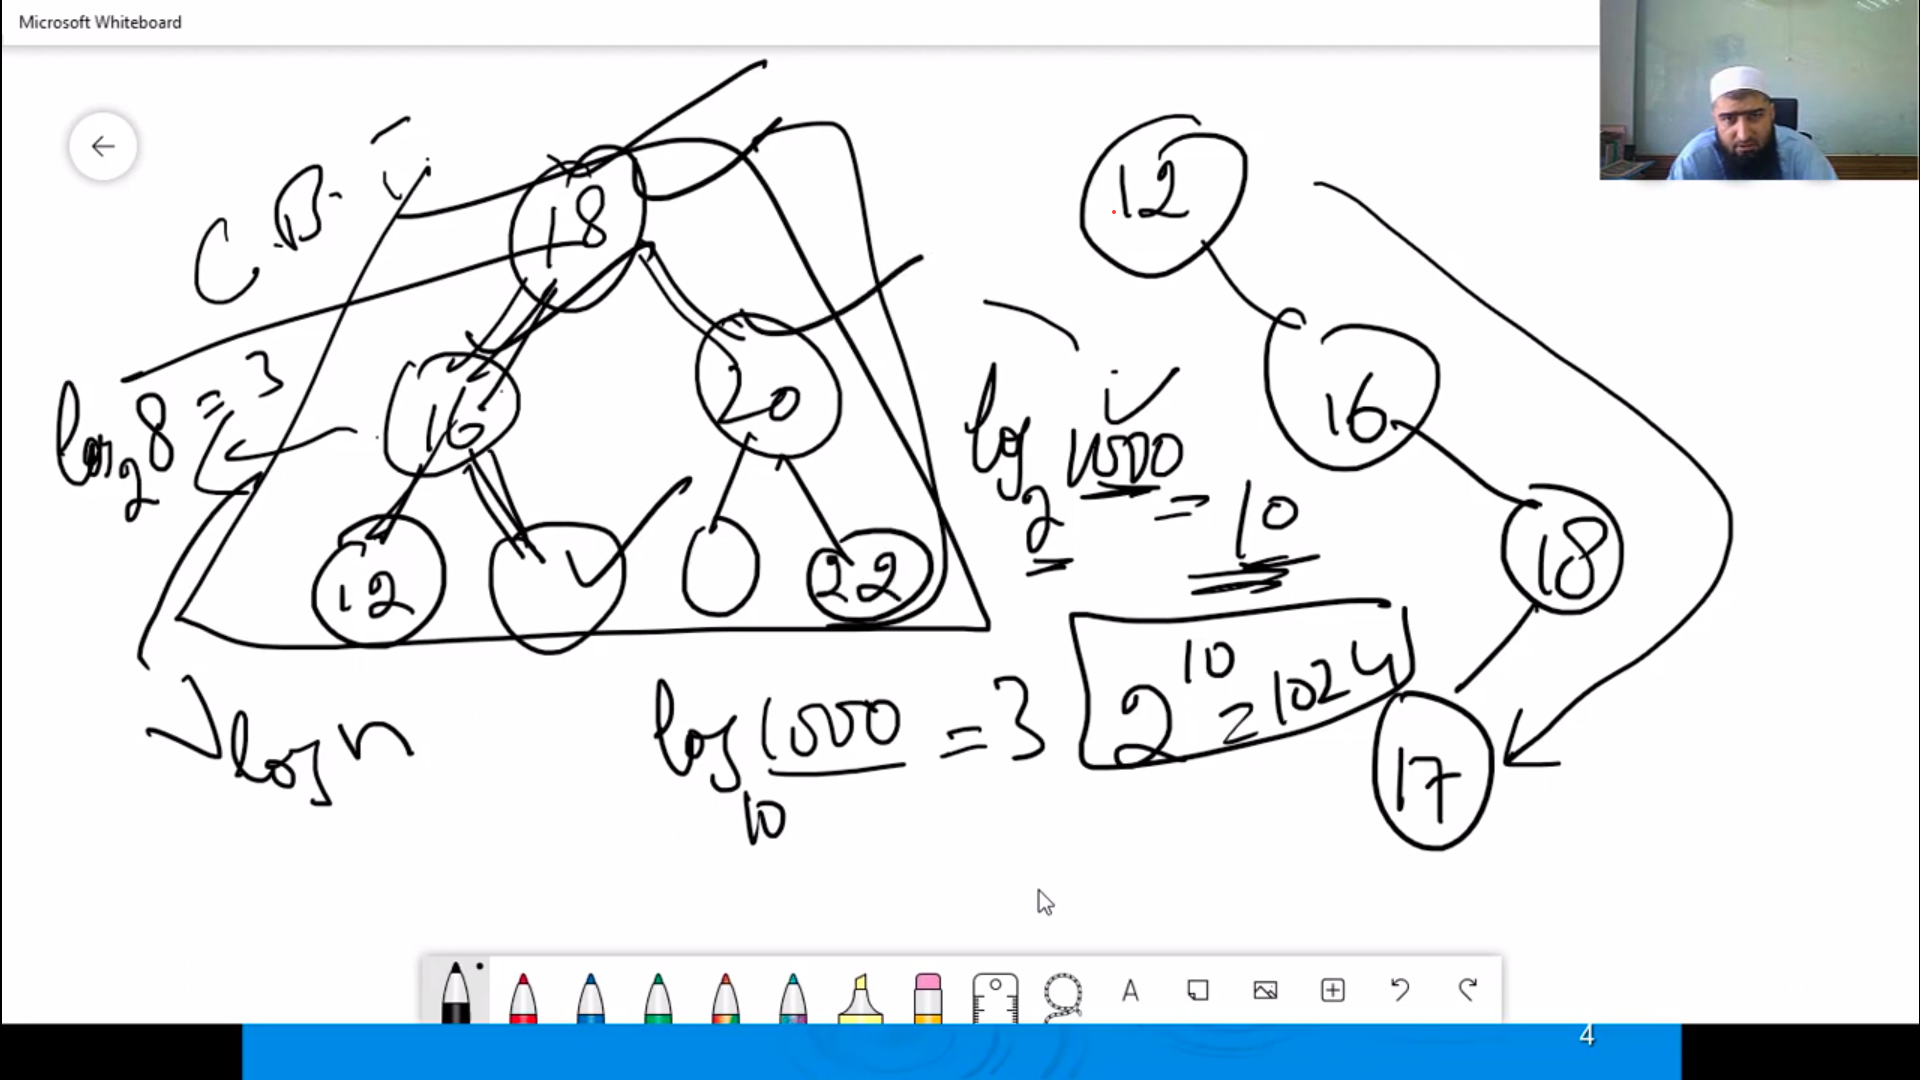 Microsoft Whiteboard
C.B.T
18
16
20
12
22
log₂8 = 3
log n
log₂1000 = 10
log₁₀1000 = 3
2¹⁰ = 1024
12
16
18
17
A
4